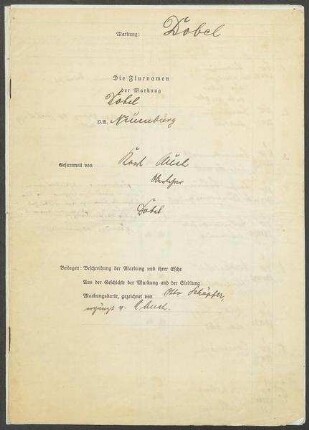 Markung: Dobel
Die Flurnamen
der Markung
Dobel
O.A. Neuenbürg
Gesammelt von Karl
Dobel
Beilagen: Beschreibung der Markung und ihrer Esche
Aus der Geschichte der Markung und der Siedlung
Markungskarte, gezeichnet von Otto
ergänzt v.